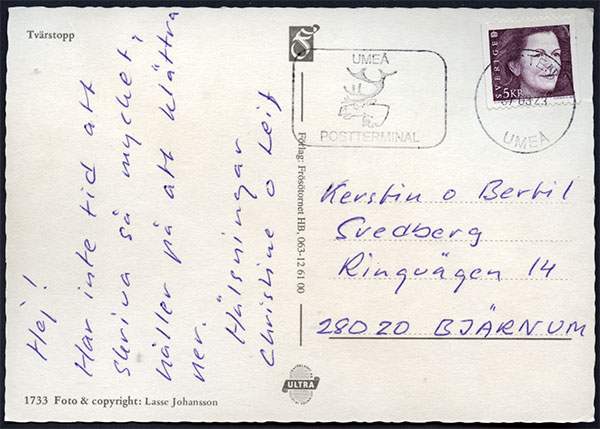 Tvärstopp
Hej!
Har inte tid att
skriva så mycket,
håller på att klättra
ner.
Hälsningar
Christine o Leif
1733 Foto & copyright: Lasse Johansson
Förlag: Frösötornet HB, 063-12 61 00
ULTRA
UMEÅ
POSTTERMINAL
SVERIGE
5KR
UMEÅ
Kerstin o Bertil
Svedberg
Ringvägen 14
28020 BJÄRNUM